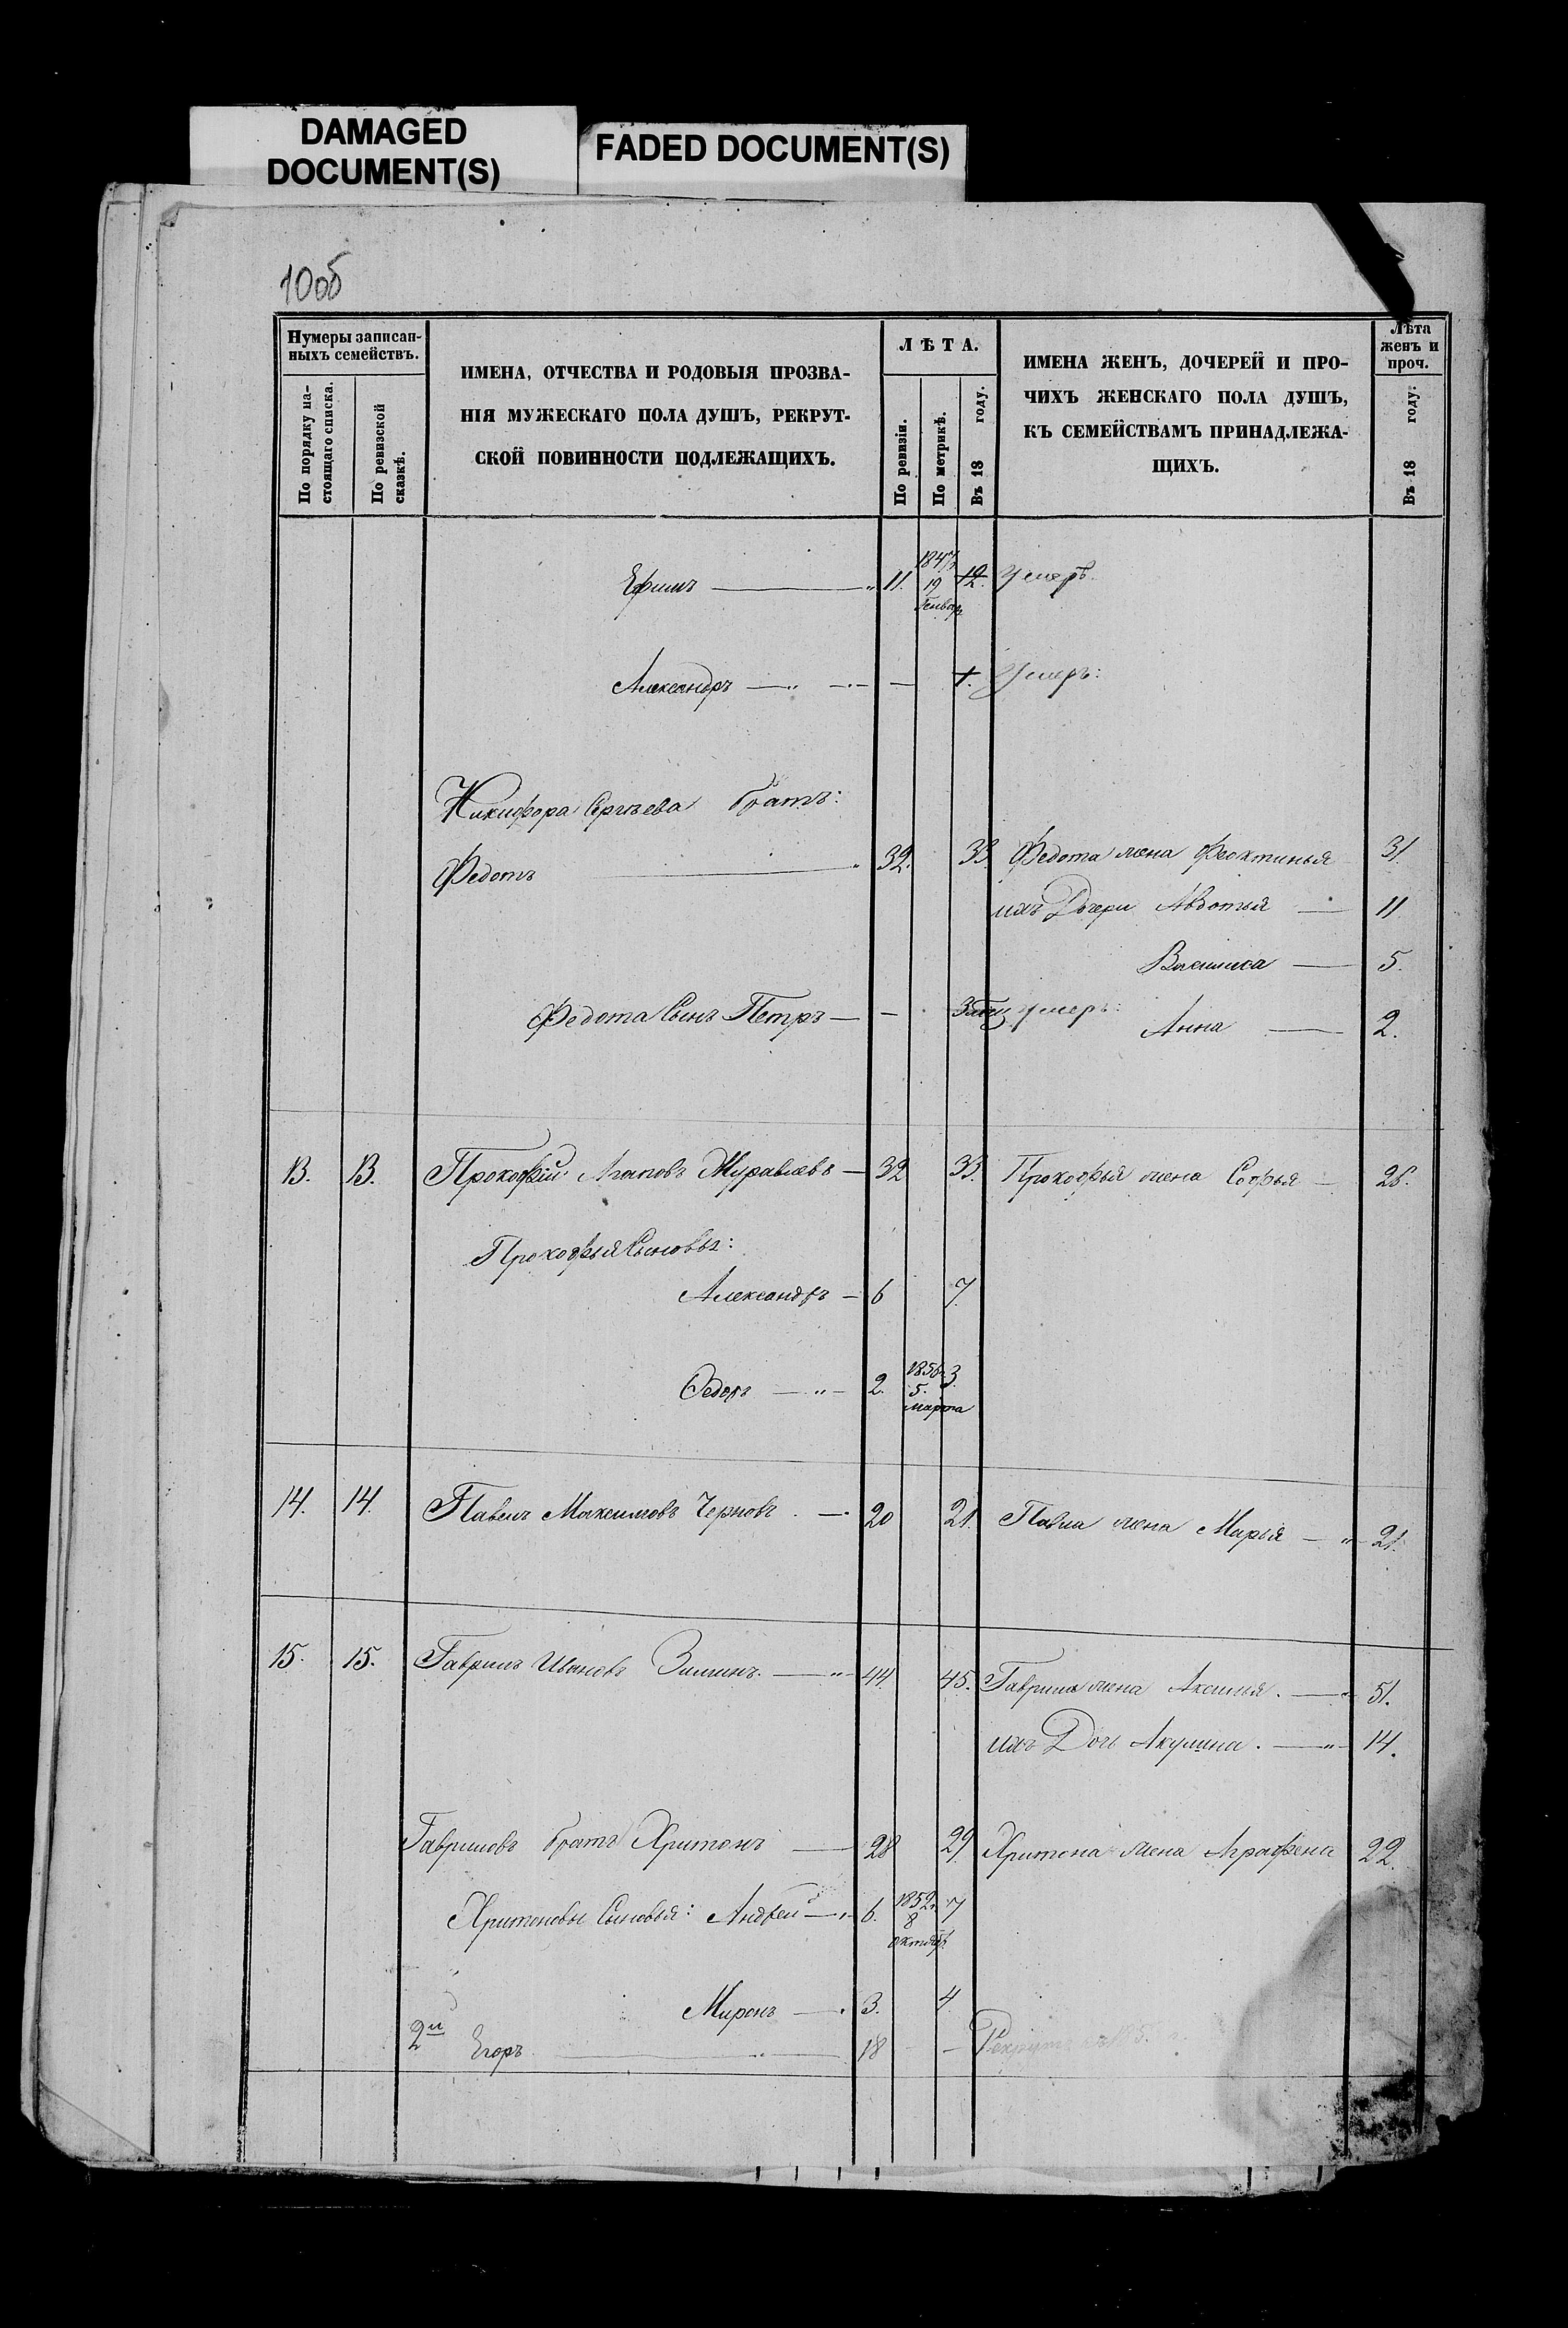 DAMAGED
DOCUMENT(S)
FADED DOCUMENT(S)
10об
Нумеры записан-
ныхъ семействъ.
По порядку на-
стоящаго списка.
По ревизской
сказкѣ.
ИМЕНА, ОТЧЕСТВА И РОДОВЫЯ ПРОЗВА-
НІЯ МУЖЕСКАГО ПОЛА ДУШЪ, РЕКРУТ-
СКОЙ ПОВИННОСТИ ПОДЛЕЖАЩИХЪ.
ЛѢТА.
По ревизіи.
По метрикѣ.
Въ 18 году.
ИМЕНА ЖЕНЪ, ДОЧЕРЕЙ И ПРО-
ЧИХЪ ЖЕНСКАГО ПОЛА ДУШЪ,
КЪ СЕМЕЙСТВАМЪ ПРИНАДЛЕЖА-
ЩИХЪ.
Лѣта
женъ и
проч.
Въ 18 году.
Ефимъ — 11. 1847 19 Генвар 12. Умеръ.
Александръ — — 1. Умеръ:
Никифора Сергѣева братъ:
Федотъ — 32. 33. Федота жена Феоктинья 31
ихъ Дочери Авдотья — 11
Василиса — 5.
Федота Сынъ Петръ — — умеръ: Анна — 2.
13. 13. Прокофій Агаповъ Журавлевъ — 32 33. Прокофья жена Софья — 28.
Прокофья Сыновья:
Александръ — 6 7.
Федоръ — 2. 1856 5. марта 3.
14. 14. Павелъ Максимовъ Черновъ. — 20 21. Павла жена Марья — 21.
15. 15. Гаврилъ Ивановъ Зиминъ. — 44 45. Гаврила жена Аксинья. — 51.
ихъ Дочь Акулина. — 14.
Гавриловъ братъ Хритонъ — 28 29. Хритона жена Аграфена 22.
Хритоновы Сыновья: Андрей — 6. 1852 8 октябр. 7
Миронъ — 3. 4
2й Егоръ — 18 — Рекрутъ